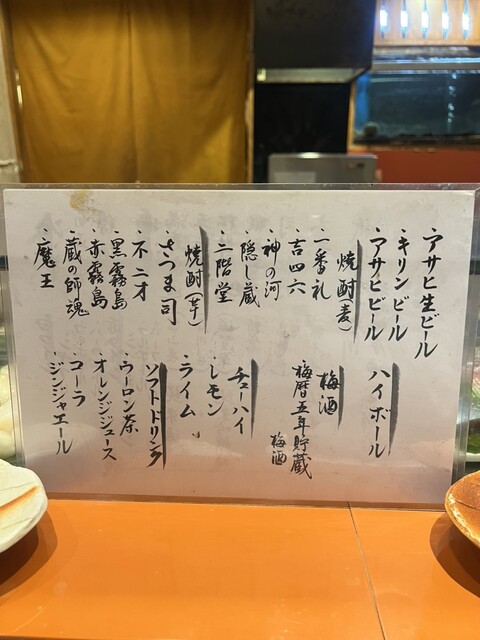 ・アサヒ生ビール
・キリンビール
・アサヒビール
焼酎(麦)
・一番札
・吉四六
・神の河
・隠し蔵
・二階堂
焼酎(芋)
・さつま司
・不二才
・黒霧島
・赤霧島
・蔵の師魂
・魔王
ハイボール
梅酒
・梅暦五年貯蔵梅酒
チューハイ
・レモン
・ライム
ソフトドリンク
・ウーロン茶
・オレンジジュース
・コーラ
・ジンジャエール